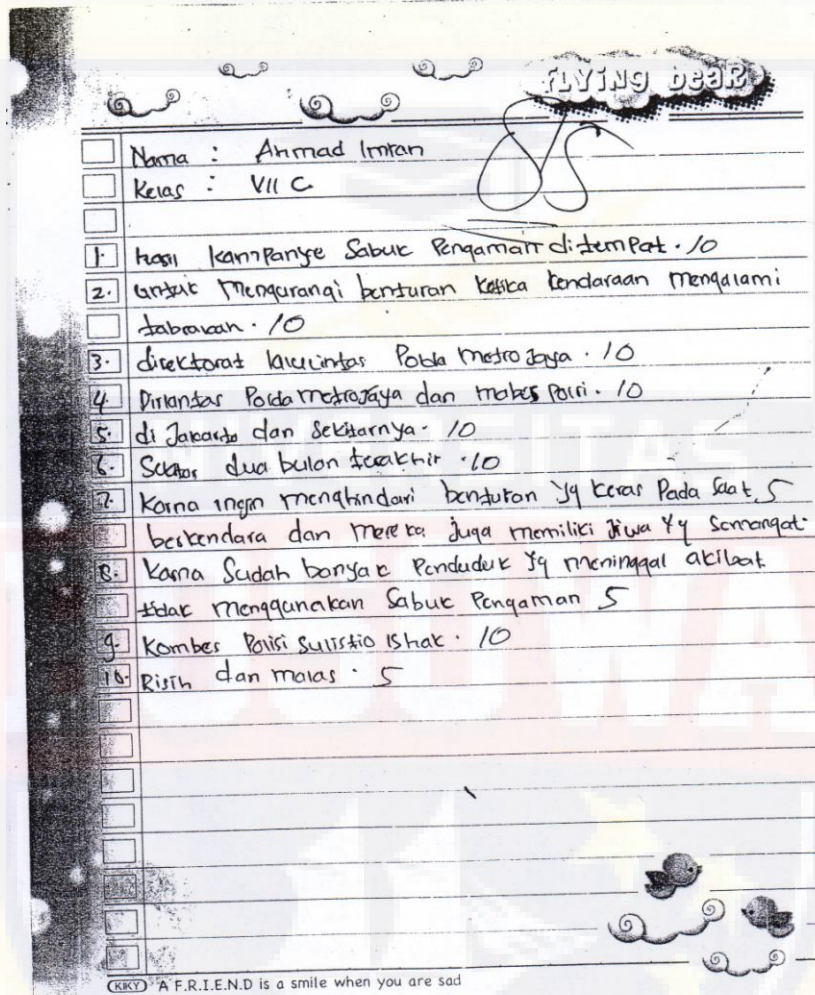 FLYING BEAR
Nama : Ahmad Imran
85
Kelas : VII C
1. hasil kampanye Sabuk Pengaman ditempat. 10
2. untuk mengurangi benturan ketika kendaraan mengalami
tabrakan. 10
3. direktorat lalulintas Polda metro Jaya. 10
4. Dirlantas Polda metroJaya dan mabes polri. 10
5. di Jakarta dan Sekitarnya. 10
6. Sekitar dua bulan terakhir. 10
7. Karna ingin menghindari benturan yg keras Pada Saat 5
berkendara dan mereka juga memiliki Jiwa Yg Semangat.
8. Karna Sudah banyak Penduduk yg meninggal akibat
tidak menggunakan Sabuk Pengaman 5
9. Kombes Polisi Sulistio Ishak. 10
10. Risih dan malas. 5
UNIVERSITAS
KIKY A F.R.I.E.N.D is a smile when you are sad